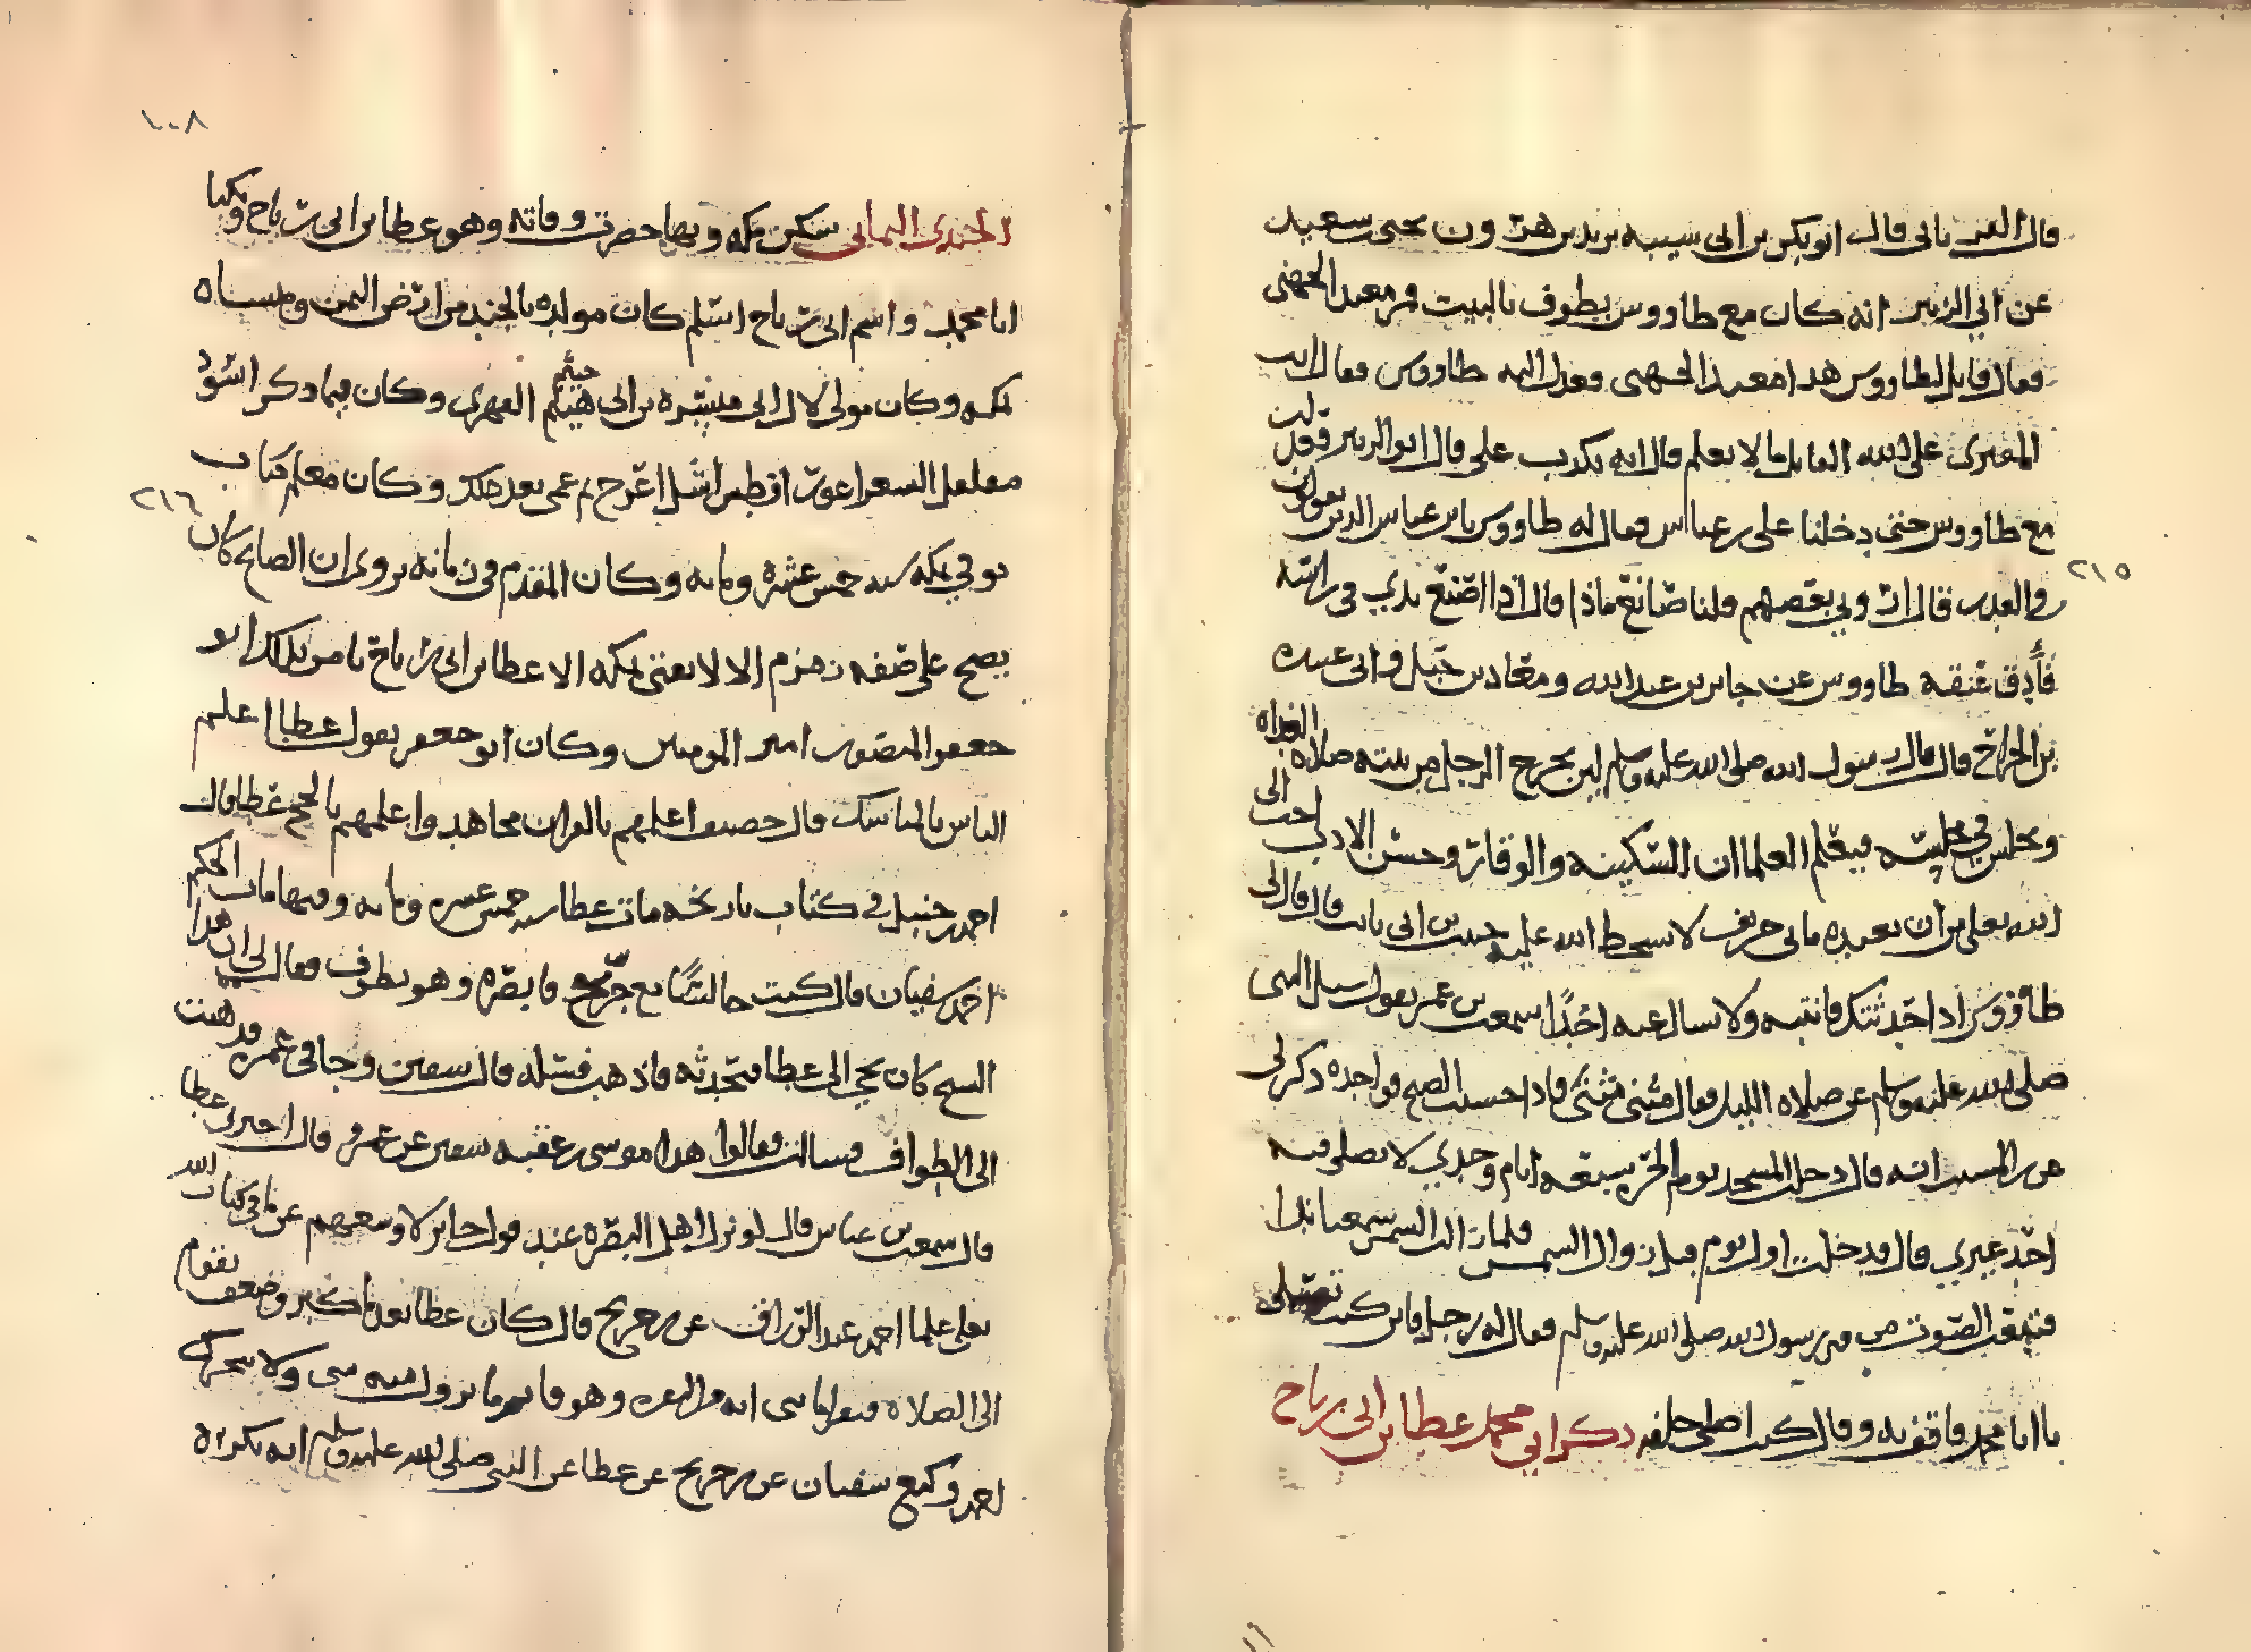 قال الفريابي قال ابو بكر بن ابي شيبه يزيد بن هرون يحيى سعيد
عن ابي الزبير انه كان مع طاووس يطوف بالبيت فمر معبد الجهني
فقال قايل لطاووس هذا معبد الجهني فعدل اليه طاووس فقال انت
المفتري على الله القايل ما لا يعلم قال انه يكذب علي قال ابو الزبير فعدلت
مع طاووس حتى دخلنا على بن عباس فقال له طاووس يا بن عباس الذين يقولون
في القدر قال اروني بعضهم قلنا صانع ماذا قال اذا اضع يدي في راسه
فأدق عنقه طاووس عن جابر بن عبد الله ومعاذ بن جبل وابي عبيده
بن الجراح قال قال رسول الله صلى الله عليه وسلم لين يخرج الرجل من بيته صلاه الغداه
ويجلس في مجلسه فيعلم العلم ان السكينه والوقار وحسن الادب احب الى
الله تعلى من ان يعبده مايى خريف لا يسخط الله عليه حبيب بن ابي ثابت قال قال لي
طاووس اذا حدثتك فاثبته ولا تسال عنه احدًا سمعت بن عمر يقول سيل النبي
صلى الله عليه وسلم عن صلاه الليل فقال مثنى مثنى فاذا خشيت الصبح فواحده ذكر لي
عن بن المسيب انه قال دخلت المسجد يوم الحره سبعه ايام وحدي لا يصلي فيه
احد غيري قال فدخلت اول يوم قبل زوال الشمس فلما زالت الشمس سمعنا ندا
فتبعت الصوت من قبر رسول الله صلى الله عليه وسلم فقال له رجل فاين كنت تصلي
يا ابا محمد قال كنت اصلي خلفه ذكر ابي محمد عطا بن ابي رباح
٢١٥
١٠٨
الجندي اليماني سكن مكه وبها حضرت وفاته وهو عطا بن ابي رباح ويكنا
ابا محمد واسم ابي رباح اسلم كان مولده بالجند من ارض اليمن ومنشاه
بمكه وكان مولى لال ابي ميسره بن ابي هيثم خيثم الفهري وكان فيما ذكر اسود
مفلفل الشعر اعور افطس اشل اعرج ثم عمي بعد ذلك وكان معلم كتاب
توفي بمكه سنه خمس عشره ومايه وكان المقدم في زمانه يروى ان الصايح كان
يصيح على ضفه زمزم الا لا يفتي بمكه الا عطا بن ابي رباح يامر بذلك ابو
جعفر المنصور امير المومنين وكان ابو جعفر يقول عطا اعلم
الناس بالمناسك قال خصيف اعلمهم بالقران مجاهد واعلمهم بالحج عطا قال
احمد بن حنبل في كتاب تاريخه مات عطا سنه خمس عشره ومايه وفيها مات الحكم
احمد سفيان قال كنت جالسًا مع جريج فابصره وهو يطوف فقال لي ان هذا
الشيخ كان يجي الى عطا فيحدثه فاذهب فسله قال سفين وجا في عمره فذهبت
الى الطواف فسالت فقالوا هذا موسى بن عقبه سفين عن عمرو قال اخبرني عطا
قال سمعت بن عباس قال لو نزل اهل البصره عند قول جابر لاوسعهم عن ما في كتاب الله
تعلى علما احمد عبد الرزاق عن بن جريج قال كان عطا بعد ما كبر وضعف يقوم
الى الصلاه فيقرا مايتي ايه من البقره وهو قايم ما يزول منه شي ولا يتحرك
احمد وكيع سفيان عن بن جريج عن عطا عن النبي صلى الله عليه وسلم انه يكره
٢١٦